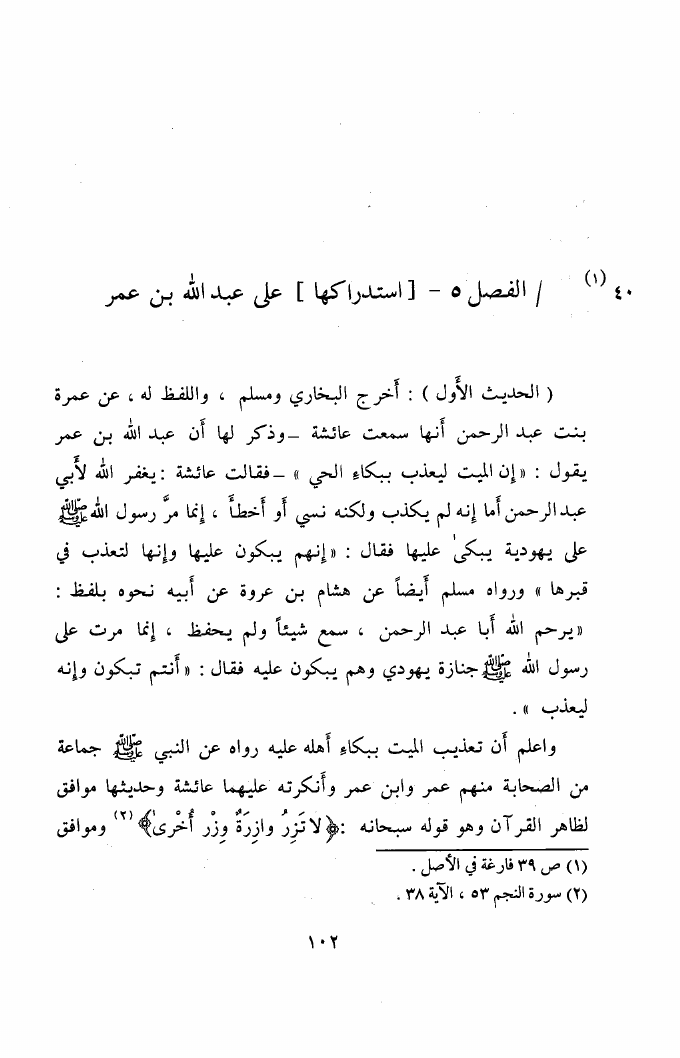 ٤٠ (١) / الفصل ٥ – [ استدراكها ] على عبد الله بن عمر
( الحديث الأول ) : أخرج البخاري ومسلم ، واللفظ له ، عن عمرة
بنت عبد الرحمن أنها سمعت عائشة – وذكر لها أن عبد الله بن عمر
يقول : «إن الميت ليعذب ببكاء الحي » – فقالت عائشة : يغفر الله لأبي
عبد الرحمن أما إنه لم يكذب ولكنه نسي أو أخطأ ، إنما مرَّ رسول الله ﷺ
على يهودية يبكىٰ عليها فقال : «إنهم يبكون عليها وإنها لتعذب في
قبرها » ورواه مسلم أيضاً عن هشام بن عروة عن أبيه نحوه بلفظ :
«يرحم الله أبا عبد الرحمن ، سمع شيئاً ولم يحفظ ، إنما مرت على
رسول الله ﷺ جنازة يهودي وهم يبكون عليه فقال : «أنتم تبكون وإنه
ليعذب » .
واعلم أن تعذيب الميت ببكاء أهله عليه رواه عن النبي ﷺ جماعة
من الصحابة منهم عمر وابن عمر وأنكرته عليهما عائشة وحديثها موافق
لظاهر القرآن وهو قوله سبحانه : ﴿لا تَزِرُ وازِرَةٌ وِزْر أُخْرىٰ﴾ (٢) وموافق
(١) ص ٣٩ فارغة في الأصل .
(٢) سورة النجم ٥٣ ، الآية ٣٨ .
١٠٢